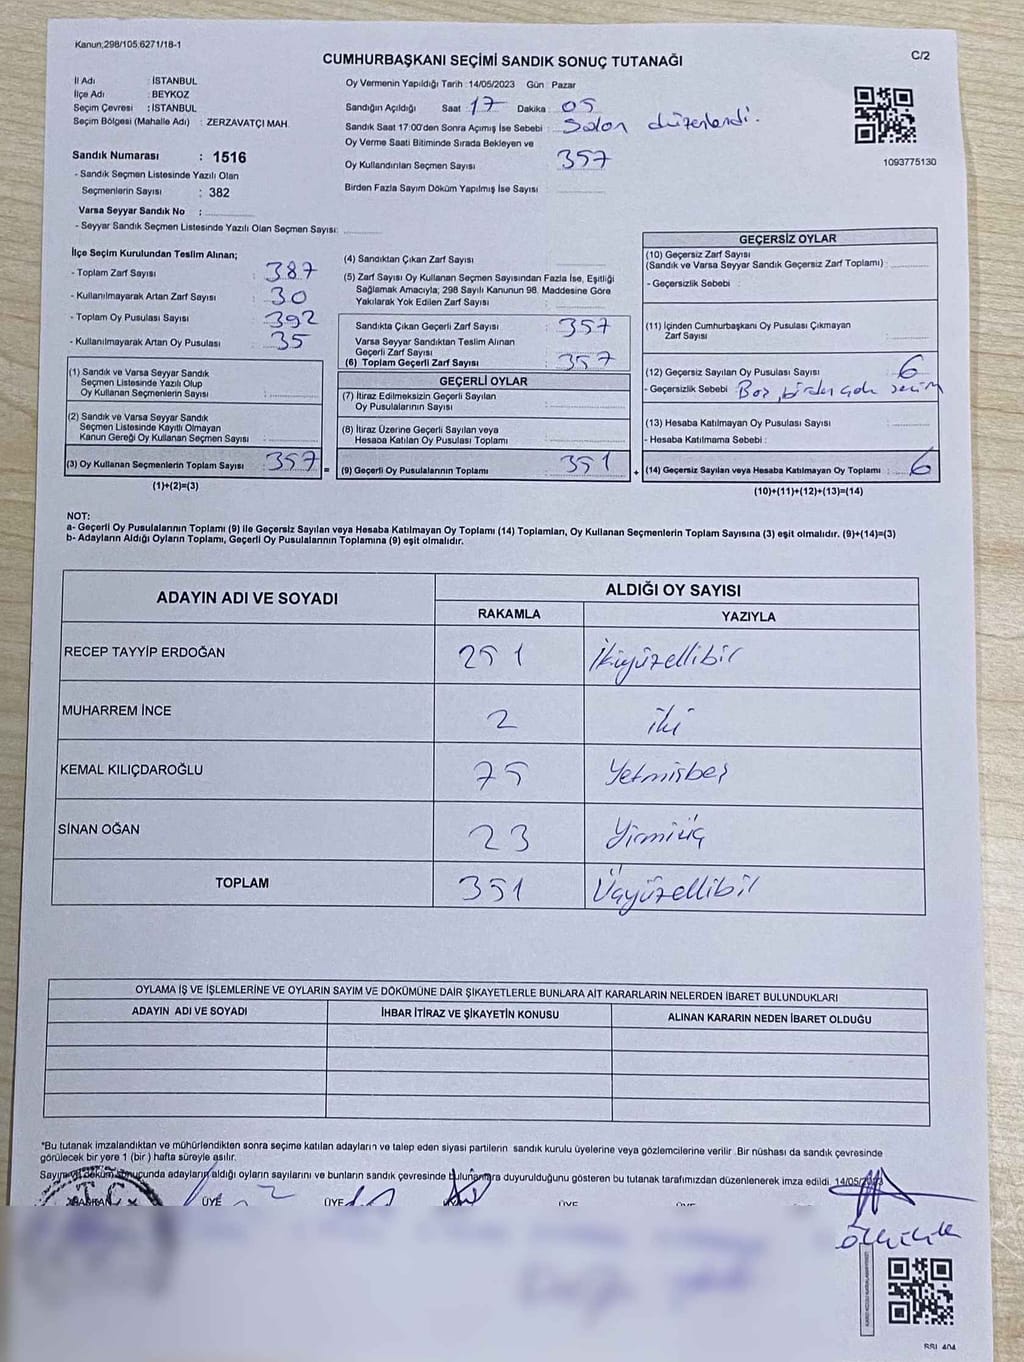 Kanun;298/105.6271/18-1
C/2
CUMHURBAŞKANI SEÇİMİ SANDIK SONUÇ TUTANAĞI
İl Adı : İSTANBUL
İlçe Adı : BEYKOZ
Seçim Çevresi : İSTANBUL
Seçim Bölgesi (Mahalle Adı) : ZERZAVATÇI MAH.
Sandık Numarası : 1516
- Sandık Seçmen Listesinde Yazılı Olan
Seçmenlerin Sayısı : 382
Varsa Seyyar Sandık No :
- Seyyar Sandık Seçmen Listesinde Yazılı Olan Seçmen Sayısı:
Oy Vermenin Yapıldığı Tarih :14/05/2023 Gün : Pazar
Sandığın Açıldığı Saat : 17 Dakika : 05
Sandık Saat 17:00'den Sonra Açımış İse Sebebi : Salon düzenlendi.
Oy Verme Saati Bitiminde Sırada Bekleyen ve
Oy Kullandırılan Seçmen Sayısı : 357
Birden Fazla Sayım Döküm Yapılmış İse Sayısı :
1093775130
İlçe Seçim Kurulundan Teslim Alınan;
- Toplam Zarf Sayısı : 387
- Kullanılmayarak Artan Zarf Sayısı : 30
- Toplam Oy Pusulası Sayısı : 392
- Kullanılmayarak Artan Oy Pusulası : 35
(1) Sandık ve Varsa Seyyar Sandık
Seçmen Listesinde Yazılı Olup
Oy Kullanan Seçmenlerin Sayısı :
(2) Sandık ve Varsa Seyyar Sandık
Seçmen Listesinde Kayıtlı Olmayan
Kanun Gereği Oy Kullanan Seçmen Sayısı :
(3) Oy Kullanan Seçmenlerin Toplam Sayısı : 357
(1)+(2)=(3)
(4) Sandıktan Çıkan Zarf Sayısı :
(5) Zarf Sayısı Oy Kullanan Seçmen Sayısından Fazla İse, Eşitliği
Sağlamak Amacıyla; 298 Sayılı Kanunun 98. Maddesine Göre
Yakılarak Yok Edilen Zarf Sayısı :
Sandıkta Çıkan Geçerli Zarf Sayısı : 357
Varsa Seyyar Sandıktan Teslim Alınan
Geçerli Zarf Sayısı :
(6) Toplam Geçerli Zarf Sayısı : 357
GEÇERLİ OYLAR
(7) İtiraz Edilmeksizin Geçerli Sayılan
Oy Pusulalarının Sayısı :
(8) İtiraz Üzerine Geçerli Sayılan veya
Hesaba Katılan Oy Pusulası Toplamı :
= (9) Geçerli Oy Pusulalarının Toplamı : 351 +
GEÇERSİZ OYLAR
(10) Geçersiz Zarf Sayısı
(Sandık ve Varsa Seyyar Sandık Geçersiz Zarf Toplamı) :
- Geçersizlik Sebebi :
(11) İçinden Cumhurbaşkanı Oy Pusulası Çıkmayan
Zarf Sayısı :
(12) Geçersiz Sayılan Oy Pusulası Sayısı : 6
- Geçersizlik Sebebi : Boş, birden çok seçim
(13) Hesaba Katılmayan Oy Pusulası Sayısı :
- Hesaba Katılmama Sebebi :
(14) Geçersiz Sayılan veya Hesaba Katılmayan Oy Toplamı : 6
(10)+(11)+(12)+(13)=(14)
NOT:
a- Geçerli Oy Pusulalarının Toplamı (9) ile Geçersiz Sayılan veya Hesaba Katılmayan Oy Toplamı (14) Toplamları, Oy Kullanan Seçmenlerin Toplam Sayısına (3) eşit olmalıdır. (9)+(14)=(3)
b- Adayların Aldığı Oyların Toplamı, Geçerli Oy Pusulalarının Toplamına (9) eşit olmalıdır.
ADAYIN ADI VE SOYADI
ALDIĞI OY SAYISI
RAKAMLA YAZIYLA
RECEP TAYYİP ERDOĞAN 251 İkiyüzellibir
MUHARREM İNCE 2 iki
KEMAL KILIÇDAROĞLU 75 Yetmişbeş
SİNAN OĞAN 23 Yirmiüç
TOPLAM 351 Üçyüzellibir
OYLAMA İŞ VE İŞLEMLERİNE VE OYLARIN SAYIM VE DÖKÜMÜNE DAİR ŞİKAYETLERLE BUNLARA AİT KARARLARIN NELERDEN İBARET BULUNDUKLARI
ADAYIN ADI VE SOYADI İHBAR İTİRAZ VE ŞİKAYETİN KONUSU ALINAN KARARIN NEDEN İBARET OLDUĞU
*Bu tutanak imzalandıktan ve mühürlendikten sonra seçime katılan adayların ve talep eden siyasi partilerin sandık kurulu üyelerine veya gözlemcilerine verilir .Bir nüshası da sandık çevresinde
görülecek bir yere 1 (bir ) hafta süreyle asılır.
Sayım ve döküm sonucunda adayların aldığı oyların sayılarını ve bunların sandık çevresinde bulunanlara duyurulduğunu gösteren bu tutanak tarafımızdan düzenlenerek imza edildi. 14/05/2023
T.C.
BAŞKAN ÜYE ÜYE ÜYE ÜYE